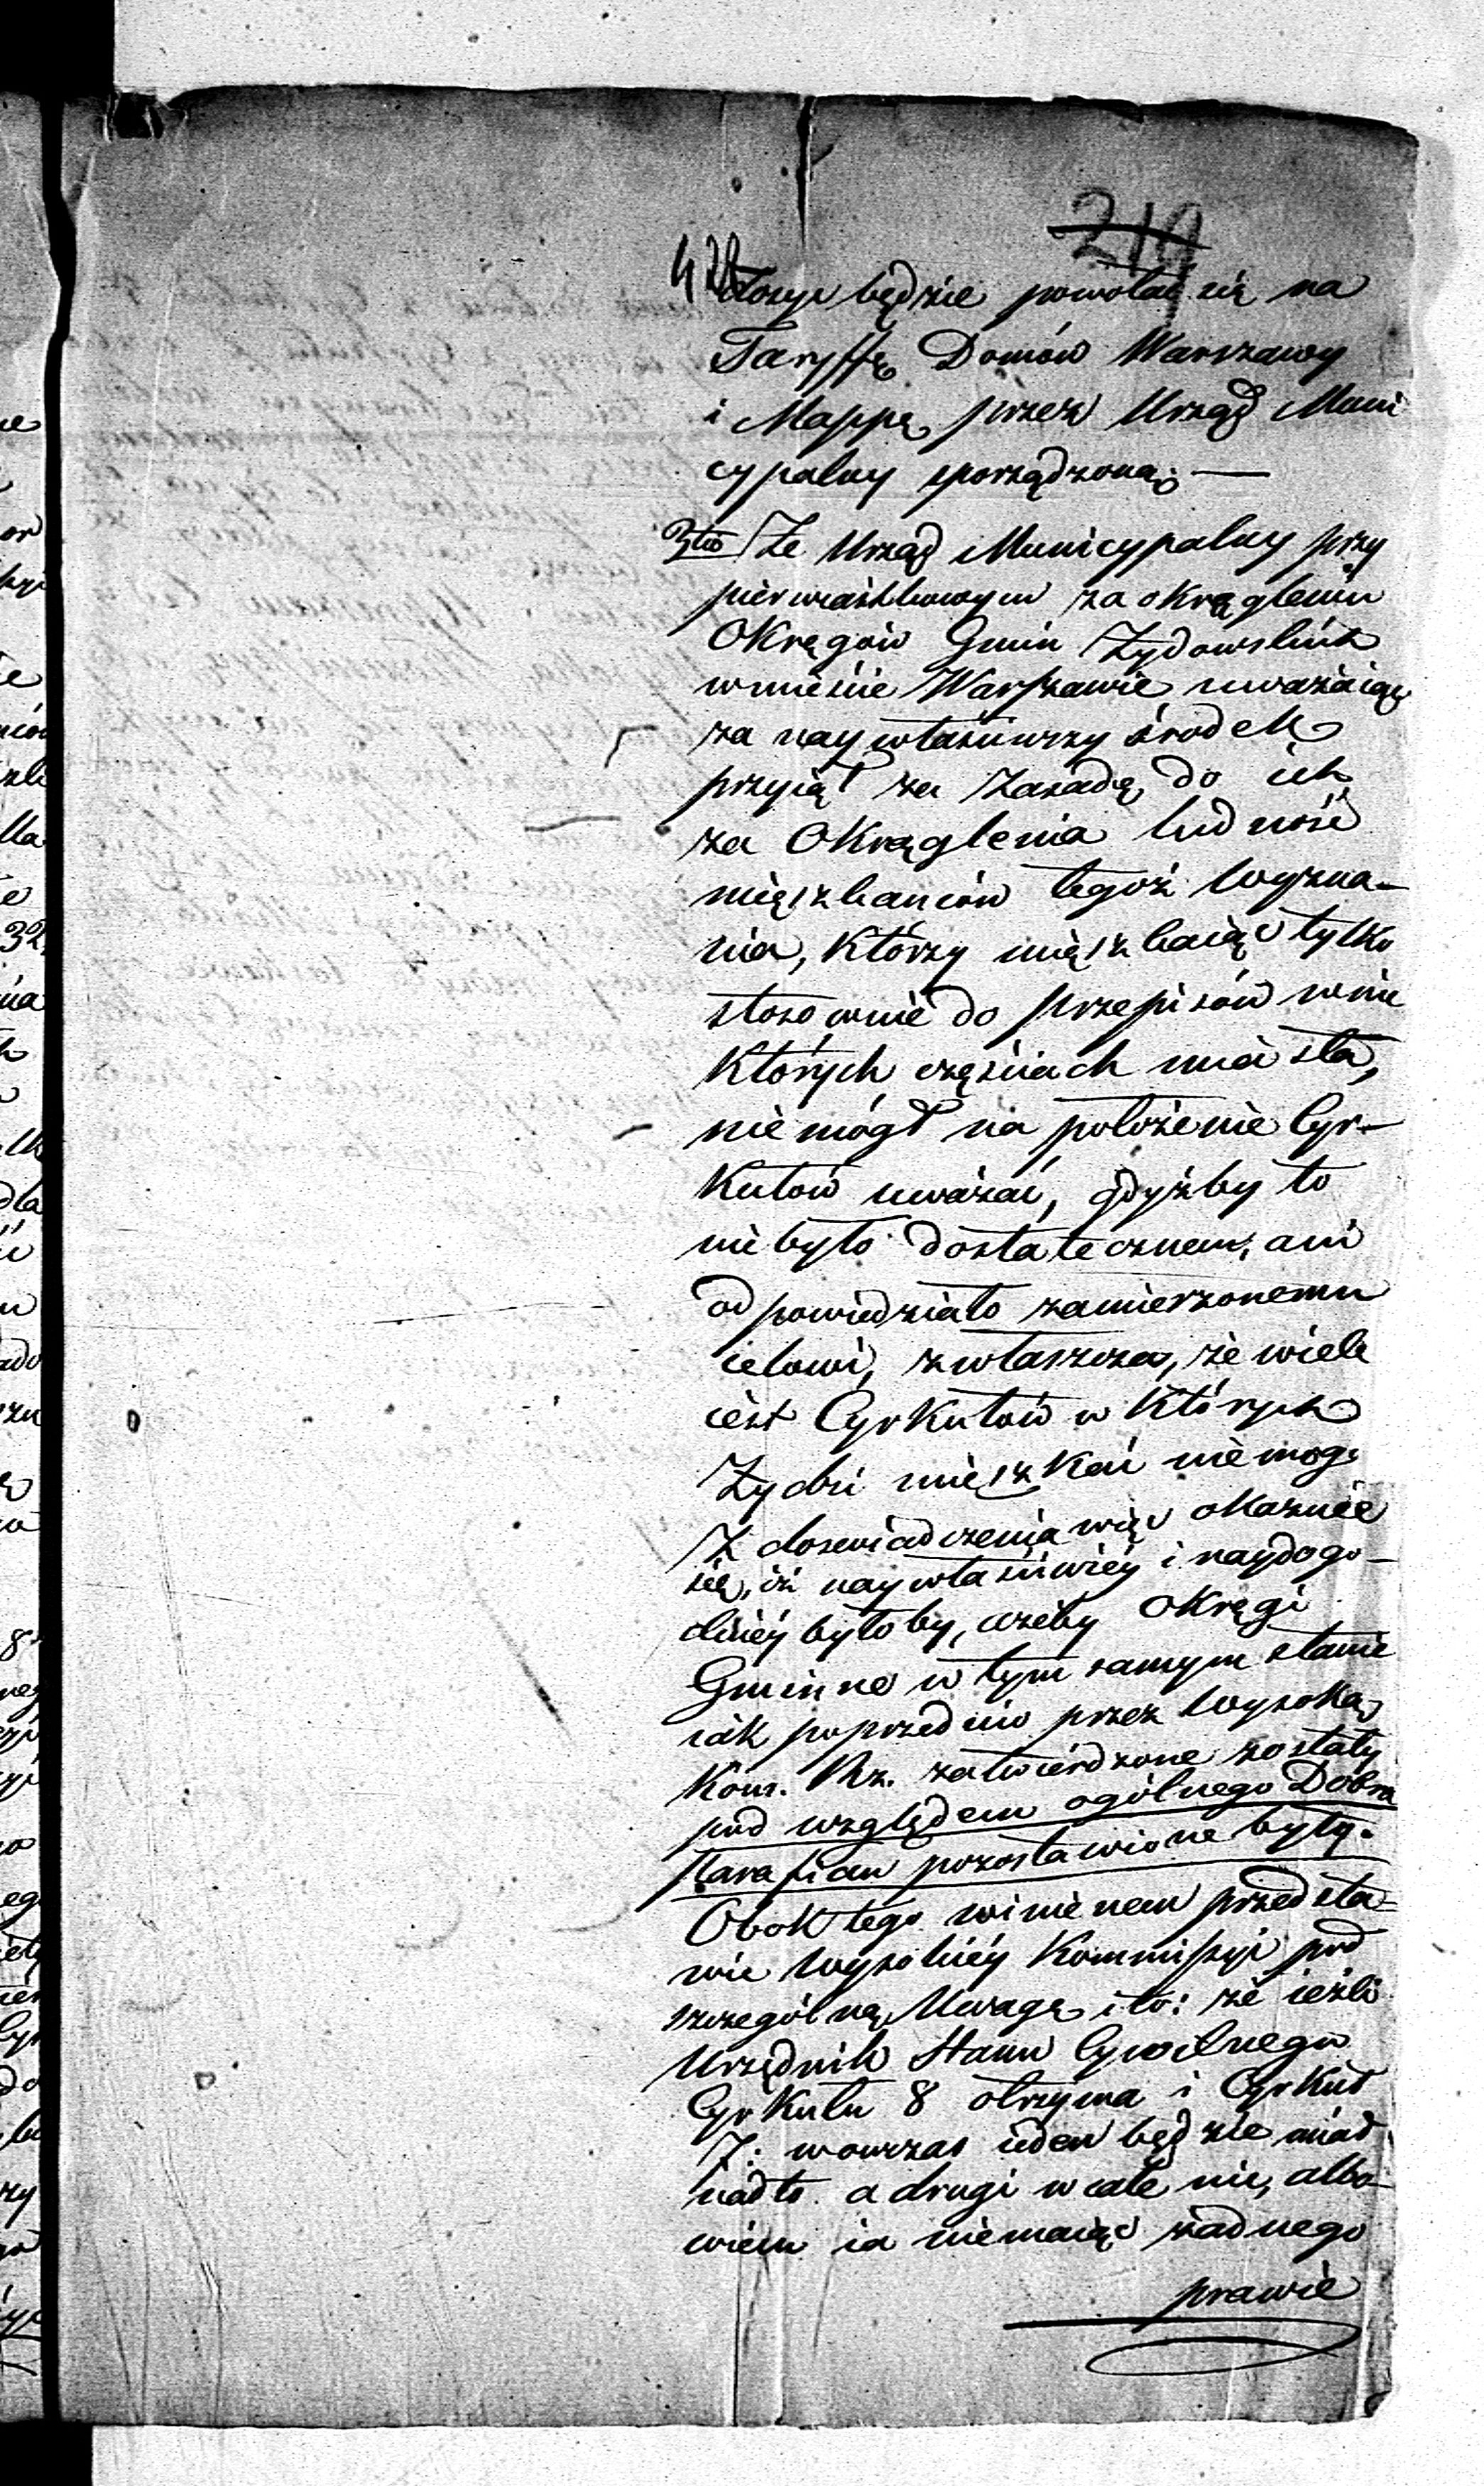 219
428
dosyc będzie powołać się na
Taryffę Domów Warszawy
i Mappę przez Urząd Muni
cypalny sporządzoną; —
3tio Że Urząd Municypalny przy
pierwiastkowym zaokrągleniu
Okręgów Gmin Żydowskich
wmieście Warszawie uważaiąc
za naywłaściwszy środek
przyiął za zasadę do ich
za Okrąglenia ludność
mieszkańców tegoż wyzna-
nia, którzy mieszkaiąc tylko
stosownie do przepisów wnie
których częściach miasta,
niemógł na położenie Cyr-
kułów uważać, gdyżby to
niebyło dostatecznem, ani
odpowiedziało zamierzonemu
celowi, zwłaszcza, że wiele
iest Cyrkułów w których
Żydzi mieszkać niemogą
Z doswiadczenia więc okazuie
się, iż naywłaściwiéy i naydogo-
dniéy byłoby, ażeby Okręgi
Gminne w tym samym stanie
iak poprzednio przez Wysoką
Kom. Rz. zatwierdzone zostały
pod względem ogólnego Dobra
Parafian pozostawione były.
Obok tego winienem przedsta-
wić Wysokiéy Kommissyi pod
szczególną Uwagę i to: że ieżli
Urzędnik Stanu Cywilnego
Cyrkułu 8 otrzyma i Cyrkuł
7: wowczas ieden będzie miał
nadto a drugi wcale nic, albo-
wiem ia niemaiąc żadnego
prawie